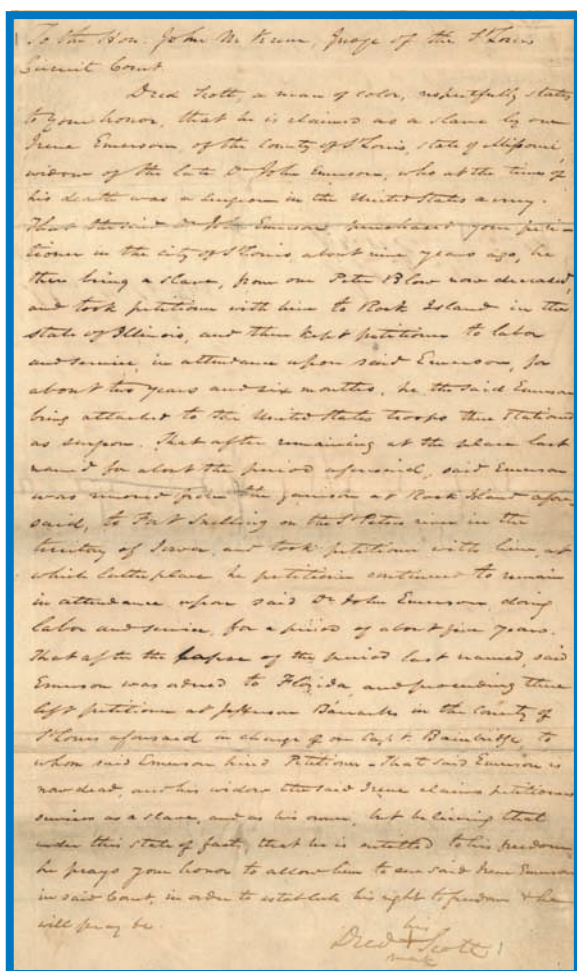 To the Hon. John M Krum, Judge of the St Louis
Circuit Court
Dred Scott, a man of color, respectfully states
to your honor, that he is claimed as a slave by one
Irene Emerson, of the County of St Louis, state of Missouri
widow of the late Dr John Emerson, who at the time of
his death was a surgeon in the United States army.
That the said Dr John Emerson purchased your peti-
tioner in the city of St Louis, about nine years ago, he
then being a slave, from one Peter Blow now deceased,
and took petitioner with him to Rock Island in the
state of Illinois, and then kept petitioner to labor
and service, in attendance upon said Emerson, for
about two years and six months, he the said Emerson
being attached to the United States troops there stationed
as surgeon. That after remaining at the place last
named for about the period aforesaid, said Emerson
was removed from the garrison at Rock Island afore-
said, to Fort Snelling on the St Peters river in the
territory of Iowa, and took petitioner with him, at
which latter place he petitioner continued to remain
in attendance upon said Dr John Emerson, doing
labor and service, for a period of about five years.
That after the lapse of the period last named, said
Emerson was ordered to Florida, and proceeding there
left petitioner at Jefferson Barracks in the County of
St Louis aforesaid in charge of one Capt. Bainbridge, to
whom said Emerson hired Petitioner - That said Emerson is
now dead, and his widow the said Irene claims petitioners
services as a slave, and as his owner, but believing that
under this state of facts, that he is entitled to his freedom,
he prays your honor to allow him to sue said Irene Emerson
in said Court, in order to establish his right to freedom & he
will pray &c.
his
Dred X Scott
mark